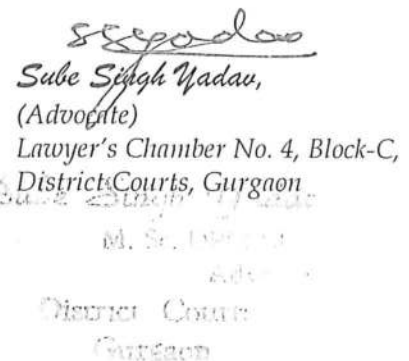 ssyadav
Sube Singh Yadav,
(Advocate)
Lawyer's Chamber No. 4, Block-C,
District Courts, Gurgaon
Sube Singh Yadav
M. Sc.
District Courts
Gurgaon